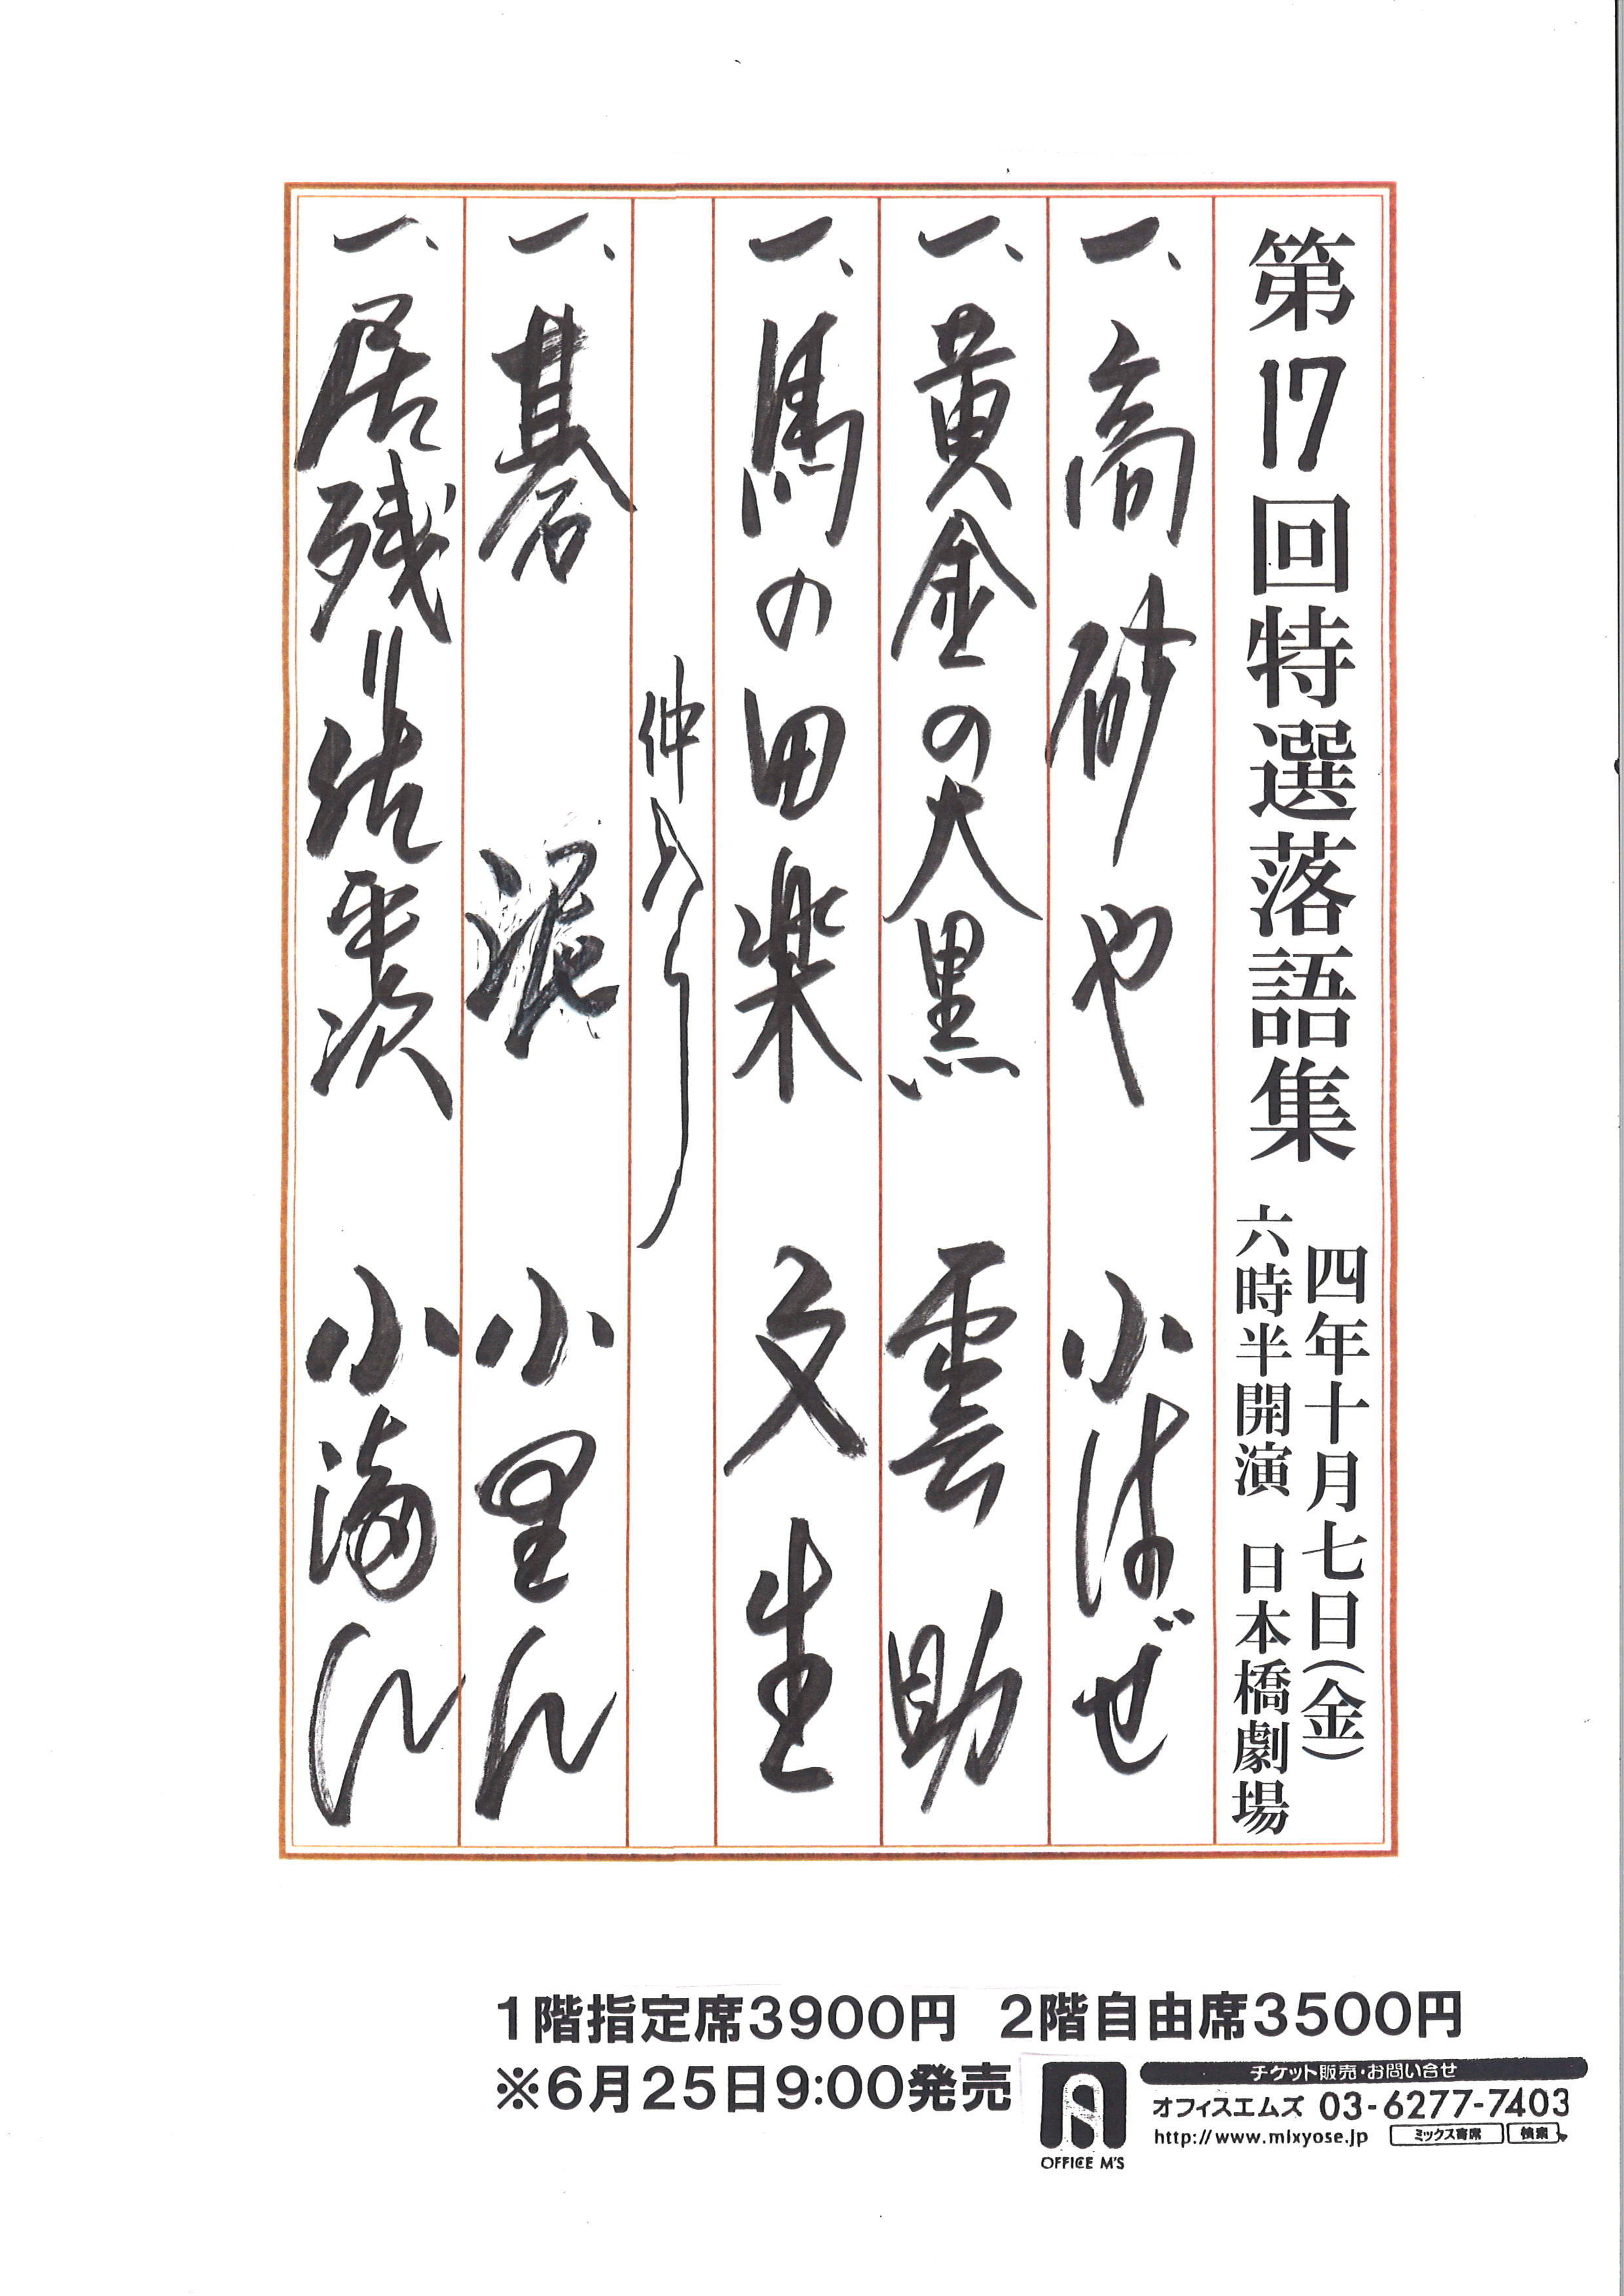 第17回特選落語集
四年十月七日(金)
六時半開演 日本橋劇場
一、高砂や 小はぜ
一、黄金の大黒 雲助
一、馬の田楽 文生
仲入り
一、碁泥 小里ん
一、居残り佐平次 小満ん
1階指定席3900円 2階自由席3500円
※6月25日9:00発売
チケット販売・お問い合せ
オフィスエムズ 03-6277-7403
http://www.mixyose.jp ミックス寄席 検索
OFFICE M'S